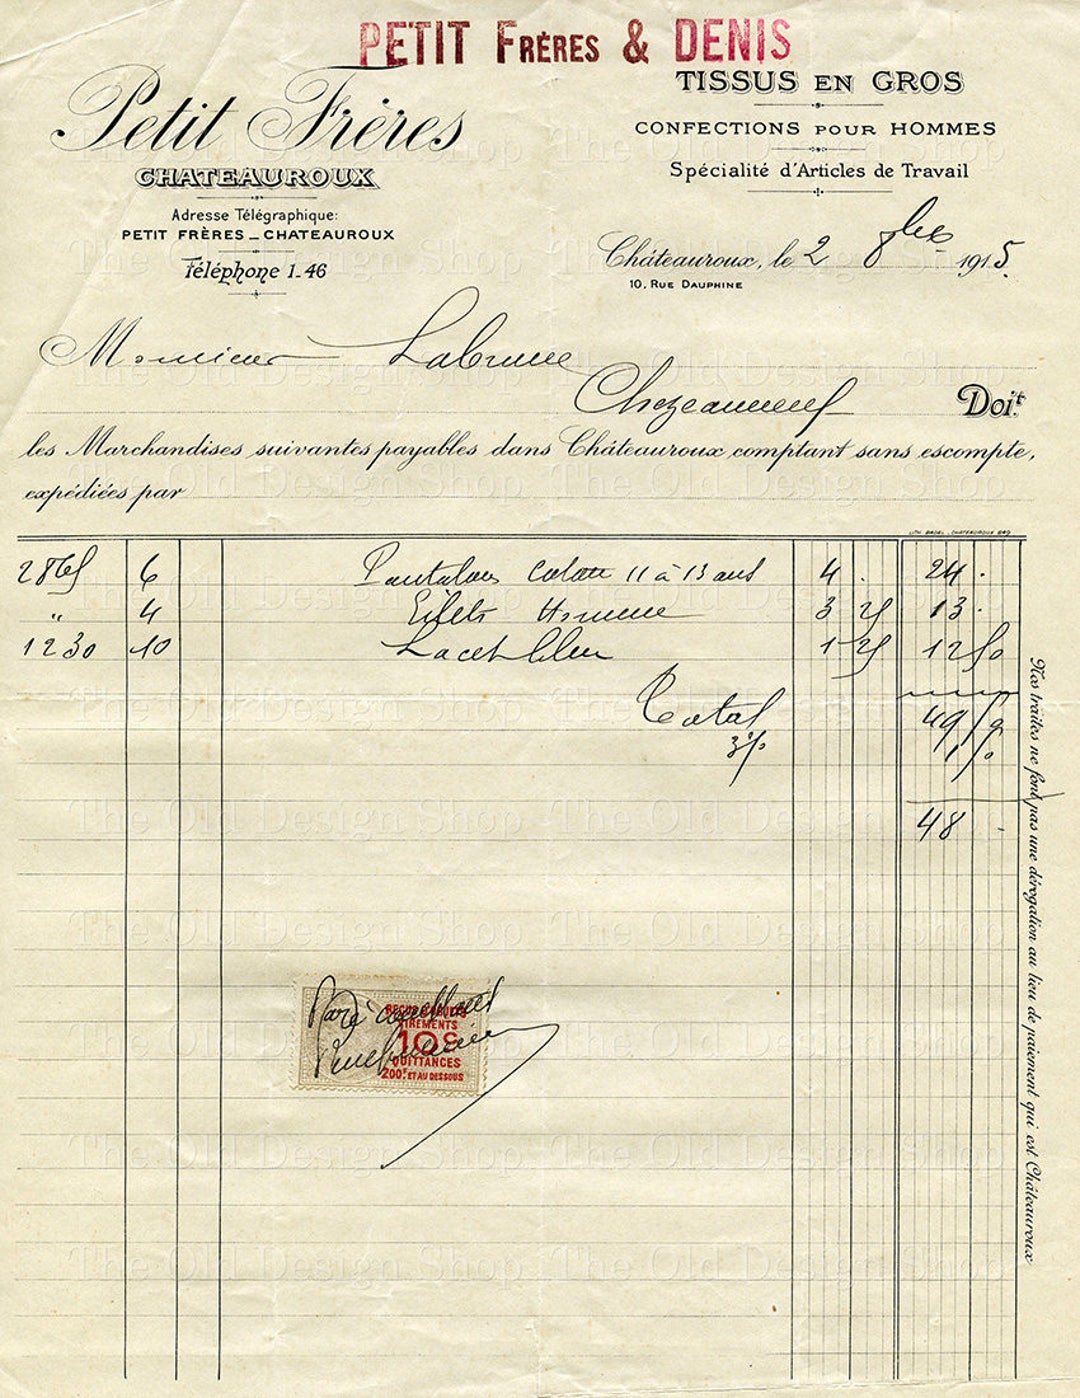 PETIT FRÈRES & DENIS
Petit Frères
CHATEAUROUX
Adresse Télégraphique:
PETIT FRÈRES _ CHATEAUROUX
Téléphone 1-46
TISSUS EN GROS
CONFECTIONS POUR HOMMES
Spécialité d'Articles de Travail
Châteauroux, le 2 8bre 1915
10, RUE DAUPHINE
Monsieur Labrune
Doit
les Marchandises suivantes payables dans Châteauroux comptant sans escompte,
expédiées par
LITH. BADEL - CHATEAUROUX
6 Pantalons Coton 11 à 13 ans 4 . 24 .
" 4 Gilets Homme 3 25 13 .
1230 10 Lacet bleu 1 25 12 50
Total 49 50
3% 1 50
48 .
Nos traites ne font pas une dérogation au lieu de paiement qui est Châteauroux
VIREMENTS
10c
QUITTANCES
200F ET AU DESSOUS
The Old Design Shop